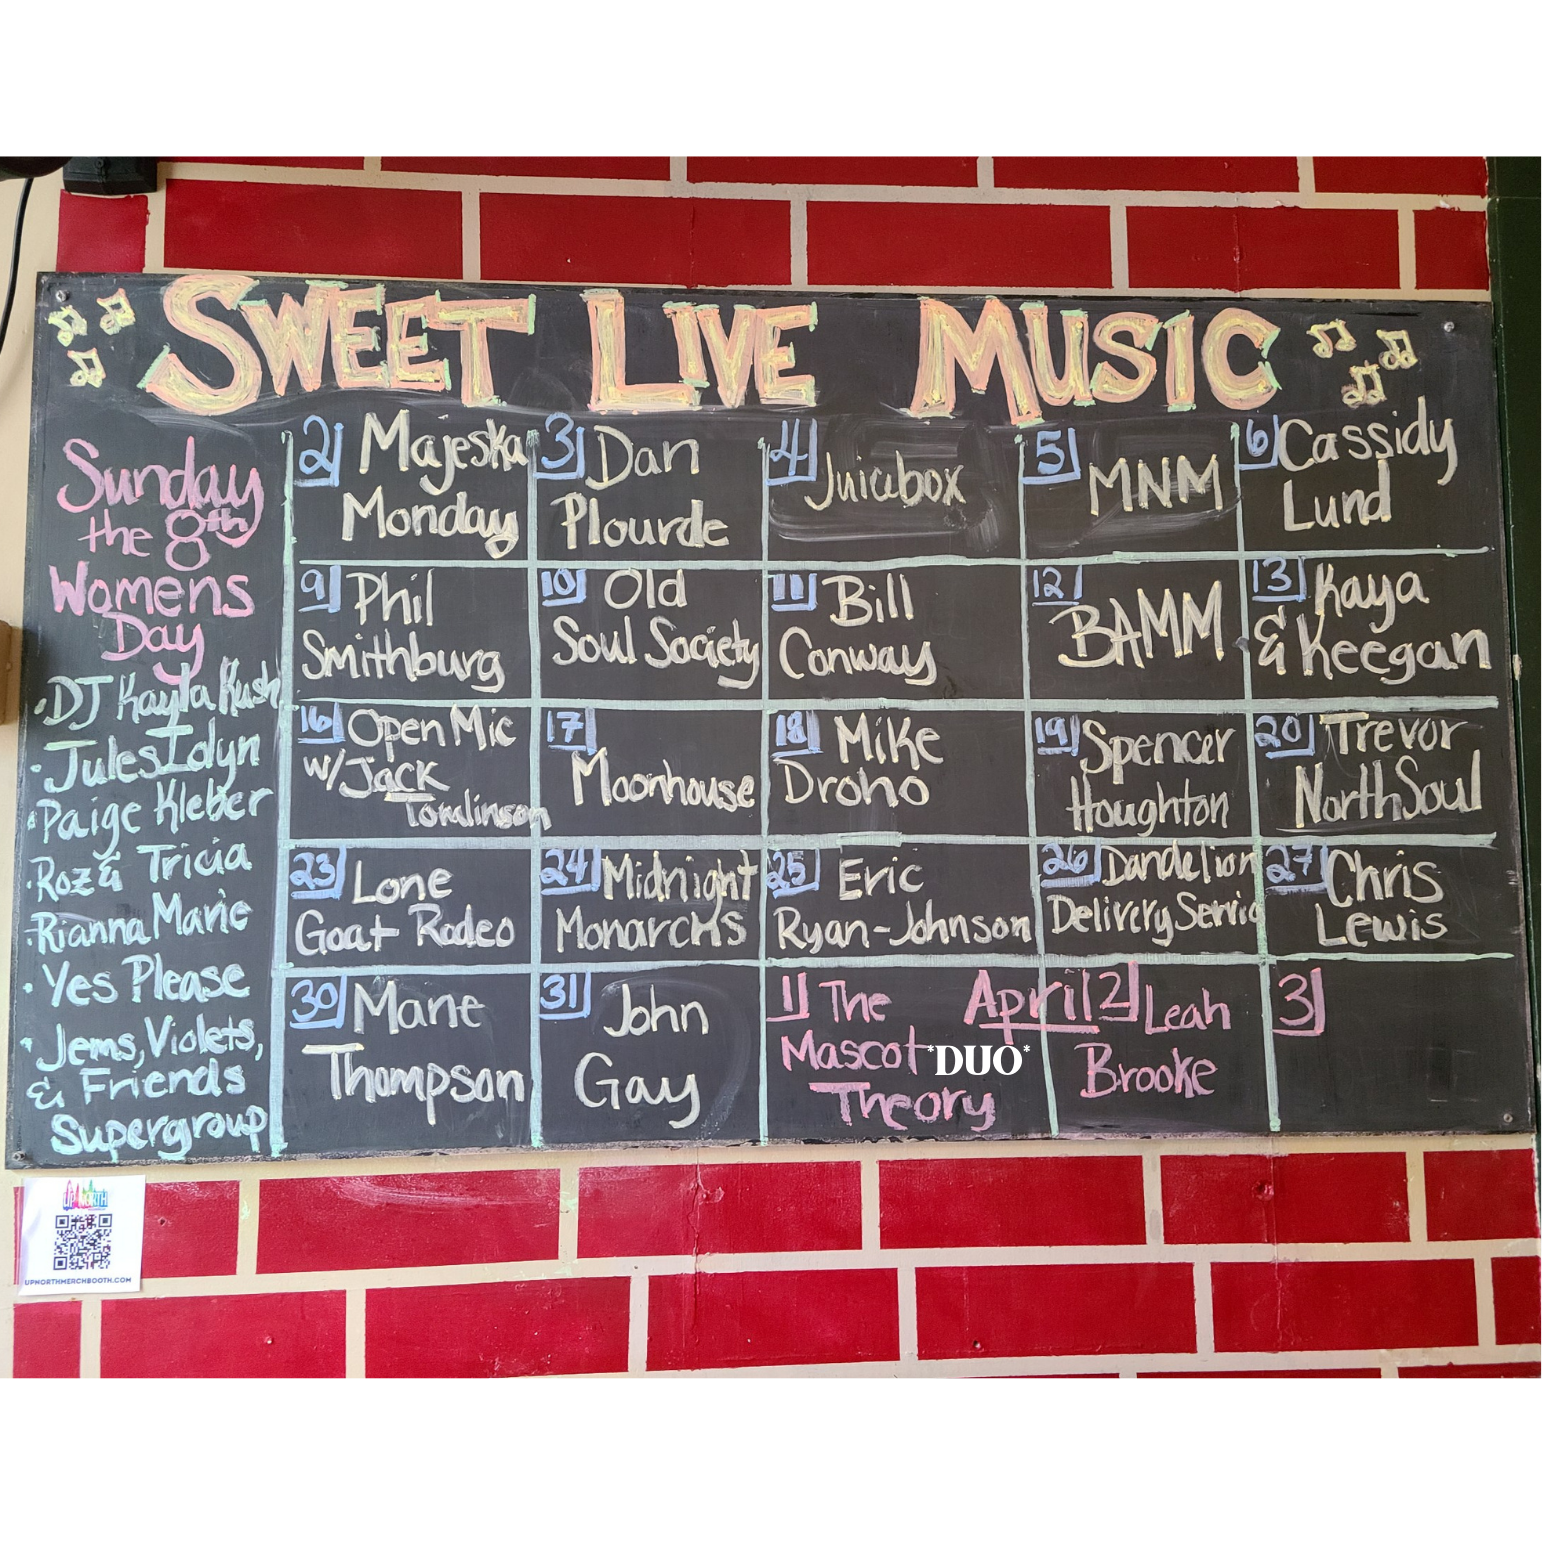 SWEET LIVE MUSIC
Sunday
the 8th
Womens
Day
• DJ Kayla Kush
• Jules Idyn
• Paige Kleber
• Roz & Tricia
• Rianna Marie
• Yes Please
• Jems, Violets,
& Friends
Supergroup
2 Majeska
Monday
3 Dan
Plourde
4 Juicebox
5 MNM
6 Cassidy
Lund
9 Phil
Smithburg
10 Old
Soul Society
11 Bill
Conway
12 BAMM
13 Kaya
& Keegan
16 Open Mic
w/ Jack
Tomlinson
17 Moonhouse
18 Mike
Droho
19 Spencer
Houghton
20 Trevor
NorthSoul
23 Lone
Goat Rodeo
24 Midnight
Monarchs
25 Eric
Ryan-Johnson
26 Dandelion
Delivery Servic
27 Chris
Lewis
30 Mane
Thompson
31 John
Gay
April
1 The
Mascot *DUO*
Theory
2 Leah
Brooke
3
UP NORTH
UPNORTHMERCHBOOTH.COM